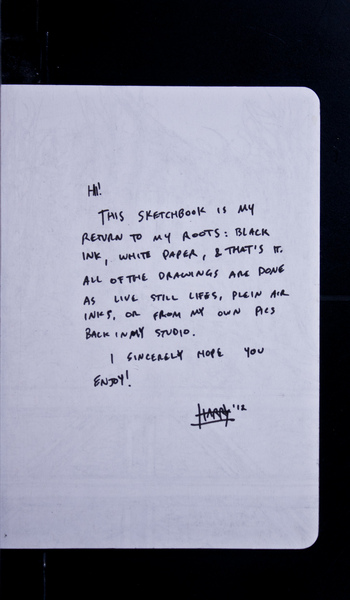 HI!
THIS SKETCHBOOK IS MY
RETURN TO MY ROOTS: BLACK
INK, WHITE PAPER, & THAT'S IT.
ALL OF THE DRAWINGS ARE DONE
AS LIVE STILL LIFES, PLEIN AIR
INKS, OR FROM MY OWN PICS
BACK IN MY STUDIO.
I SINCERELY HOPE YOU
ENJOY!
HARRY '12